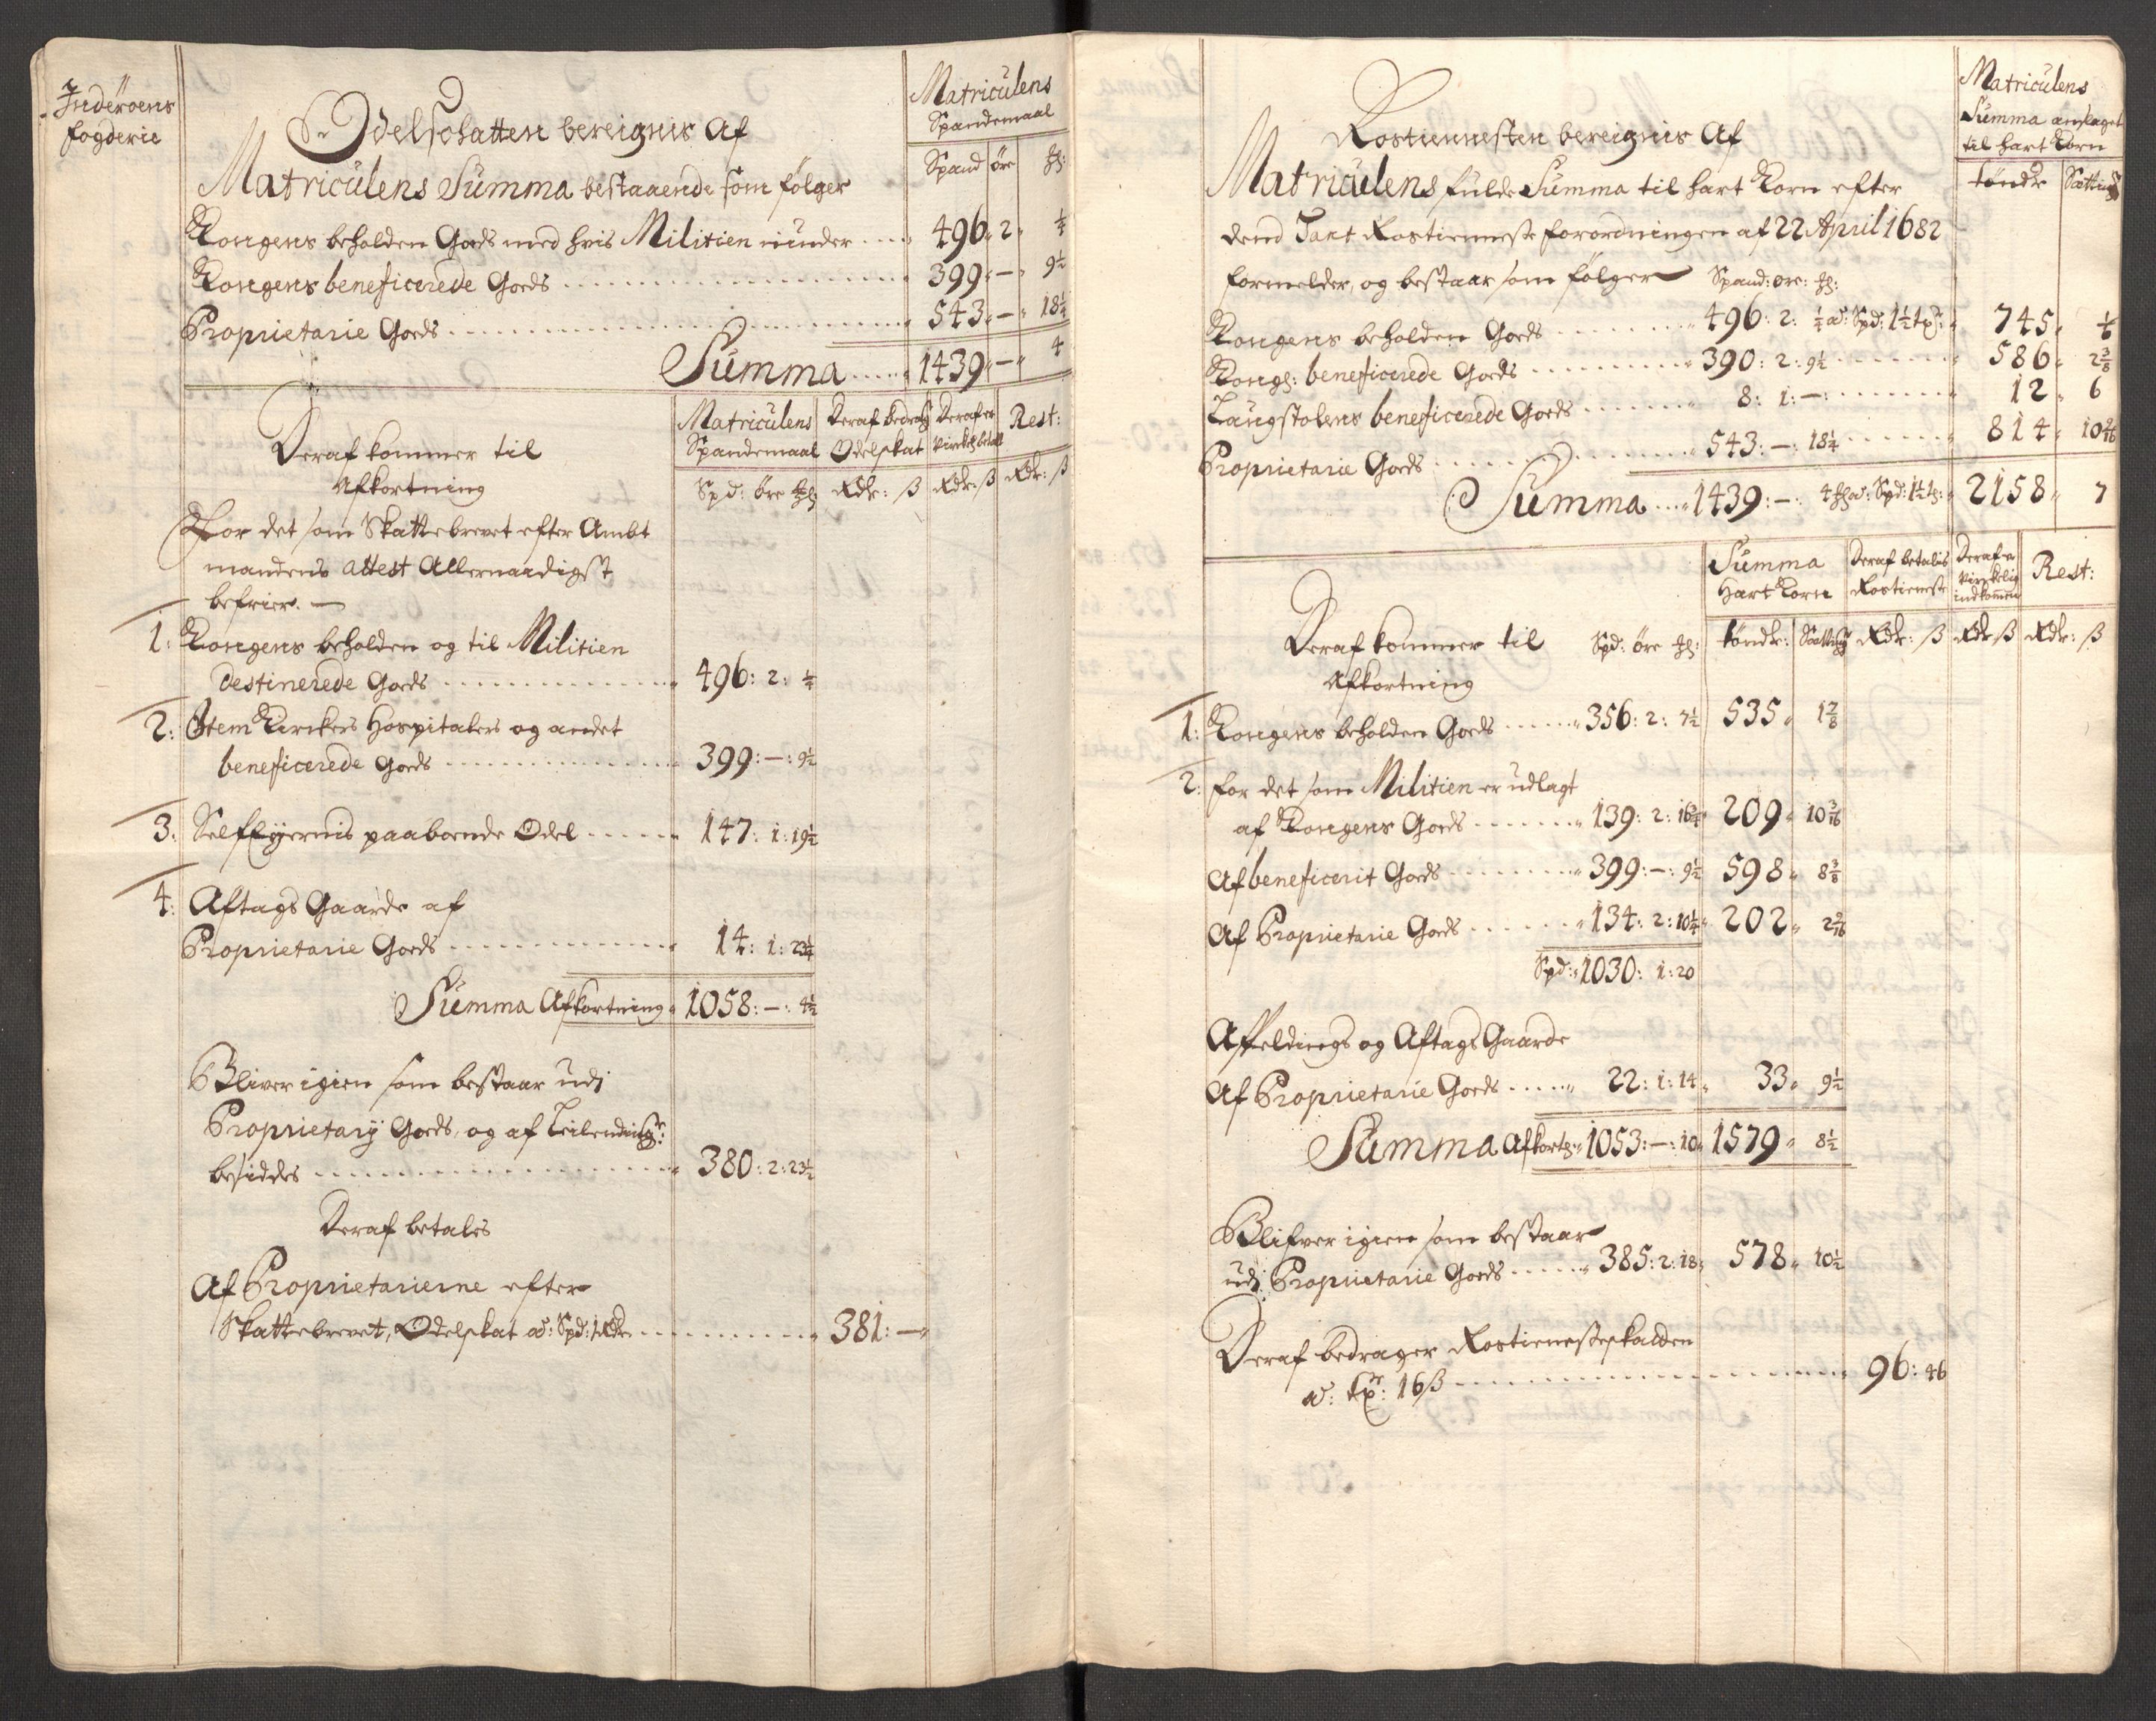 Inderöens
fogderie
Odelschatten bereignis Af
Matriculens Summa bestaaende som følger
Matriculens
Spandemaal
Spand øre
Kongens beholden Gods med hvis Militien niunder 496 2 ¼
Kongens beneficerede Gods 399 — 9½
Proprietarie Gods 543 — 18¼
Summa 1439 — 4
Deraf kommer til
Afkortning
Matriculens
Spandemaal
Spd: øre
Deraf bedrag
Odelskat
Rdr: ß
Deraf er
Virkel betalt
Rdr: ß
Rest:
Rdr: ß
For det som Skattebrevet efter Ambt
mandens attest Allernaadigst
befrier. —
1: Kongens beholden og til Militien
destinerede Gods 496: 2: ¼
2: Item Kirckers Hospitalers og andet
beneficerede Gods 399: —: 9½
3: Selfeyernis paaboende Odel 147: 1: 19½
4: Aftags Gaarde af
Proprietarie Gods 14: 1: 23¼
Summa Afkortning 1058: —: 4½
Bliver igien som bestaar udj
Proprietarij Gods, og af Leilending:
besiddes 380: 2: 23½
Deraf betales
Af Proprietarierne efter
Skattebrevet, Odelskat ad: Spd: 1 Rdr 381: —
Rostiennesten bereignis Af
Matriculens fulde Summa til hart Korn efter
dend Taxt Rostienneste forordningen af 22 April 1682
formelder, og bestaar som følger Spand: øre:
Matriculens
Summa anslaget
til hart Korn
tøndr Sætting
Kongens beholden Gods 496: 2: ¼ ad: Spd: 1½ tr: 745 ⅙
Kongs: beneficerede Gods 390: 2: 9½ 586 2⅜
Laugstolens beneficerede Gods 8: 1: — 12 6
Proprietarie Gods 543: —: 18¼ 814
Summa 1439: —: 4 ad: Spd: 1½ t: 2158 7
Deraf kommer til
Afkortning
Spd: øre
Summa
Hart Korn
tøndr: Sætting
Deraf betales
Rostieneste
Rdr: ß
Deraf er
Virkelig
indkommen
Rdr ß
Rest:
Rdr: ß
1: Kongens beholden Gods 356: 2: 7½ 535 1⅞
2: for det som Militien er udlagt
af Kongens Gods 139: 2: 16¾ 209 10 3/16
Af beneficerit Gods 399: —: 9½ 598 8⅜
Af Proprietarie Gods 134: 2: 10¼ 202 2 9/16
Spd: 1030: 1: 20
Affeldings og Aftags Gaarde
Af Proprietarie Gods 22: 1: 14 33 9½
Summa Afkort: 1053: —: 10 1579 8½
Blifver igien som bestaar
udj Proprietarie Gods 385: 2: 18 578 10½
Deraf bedrager Rostienesteskatten
ad: tr: 16 ß 96: 46